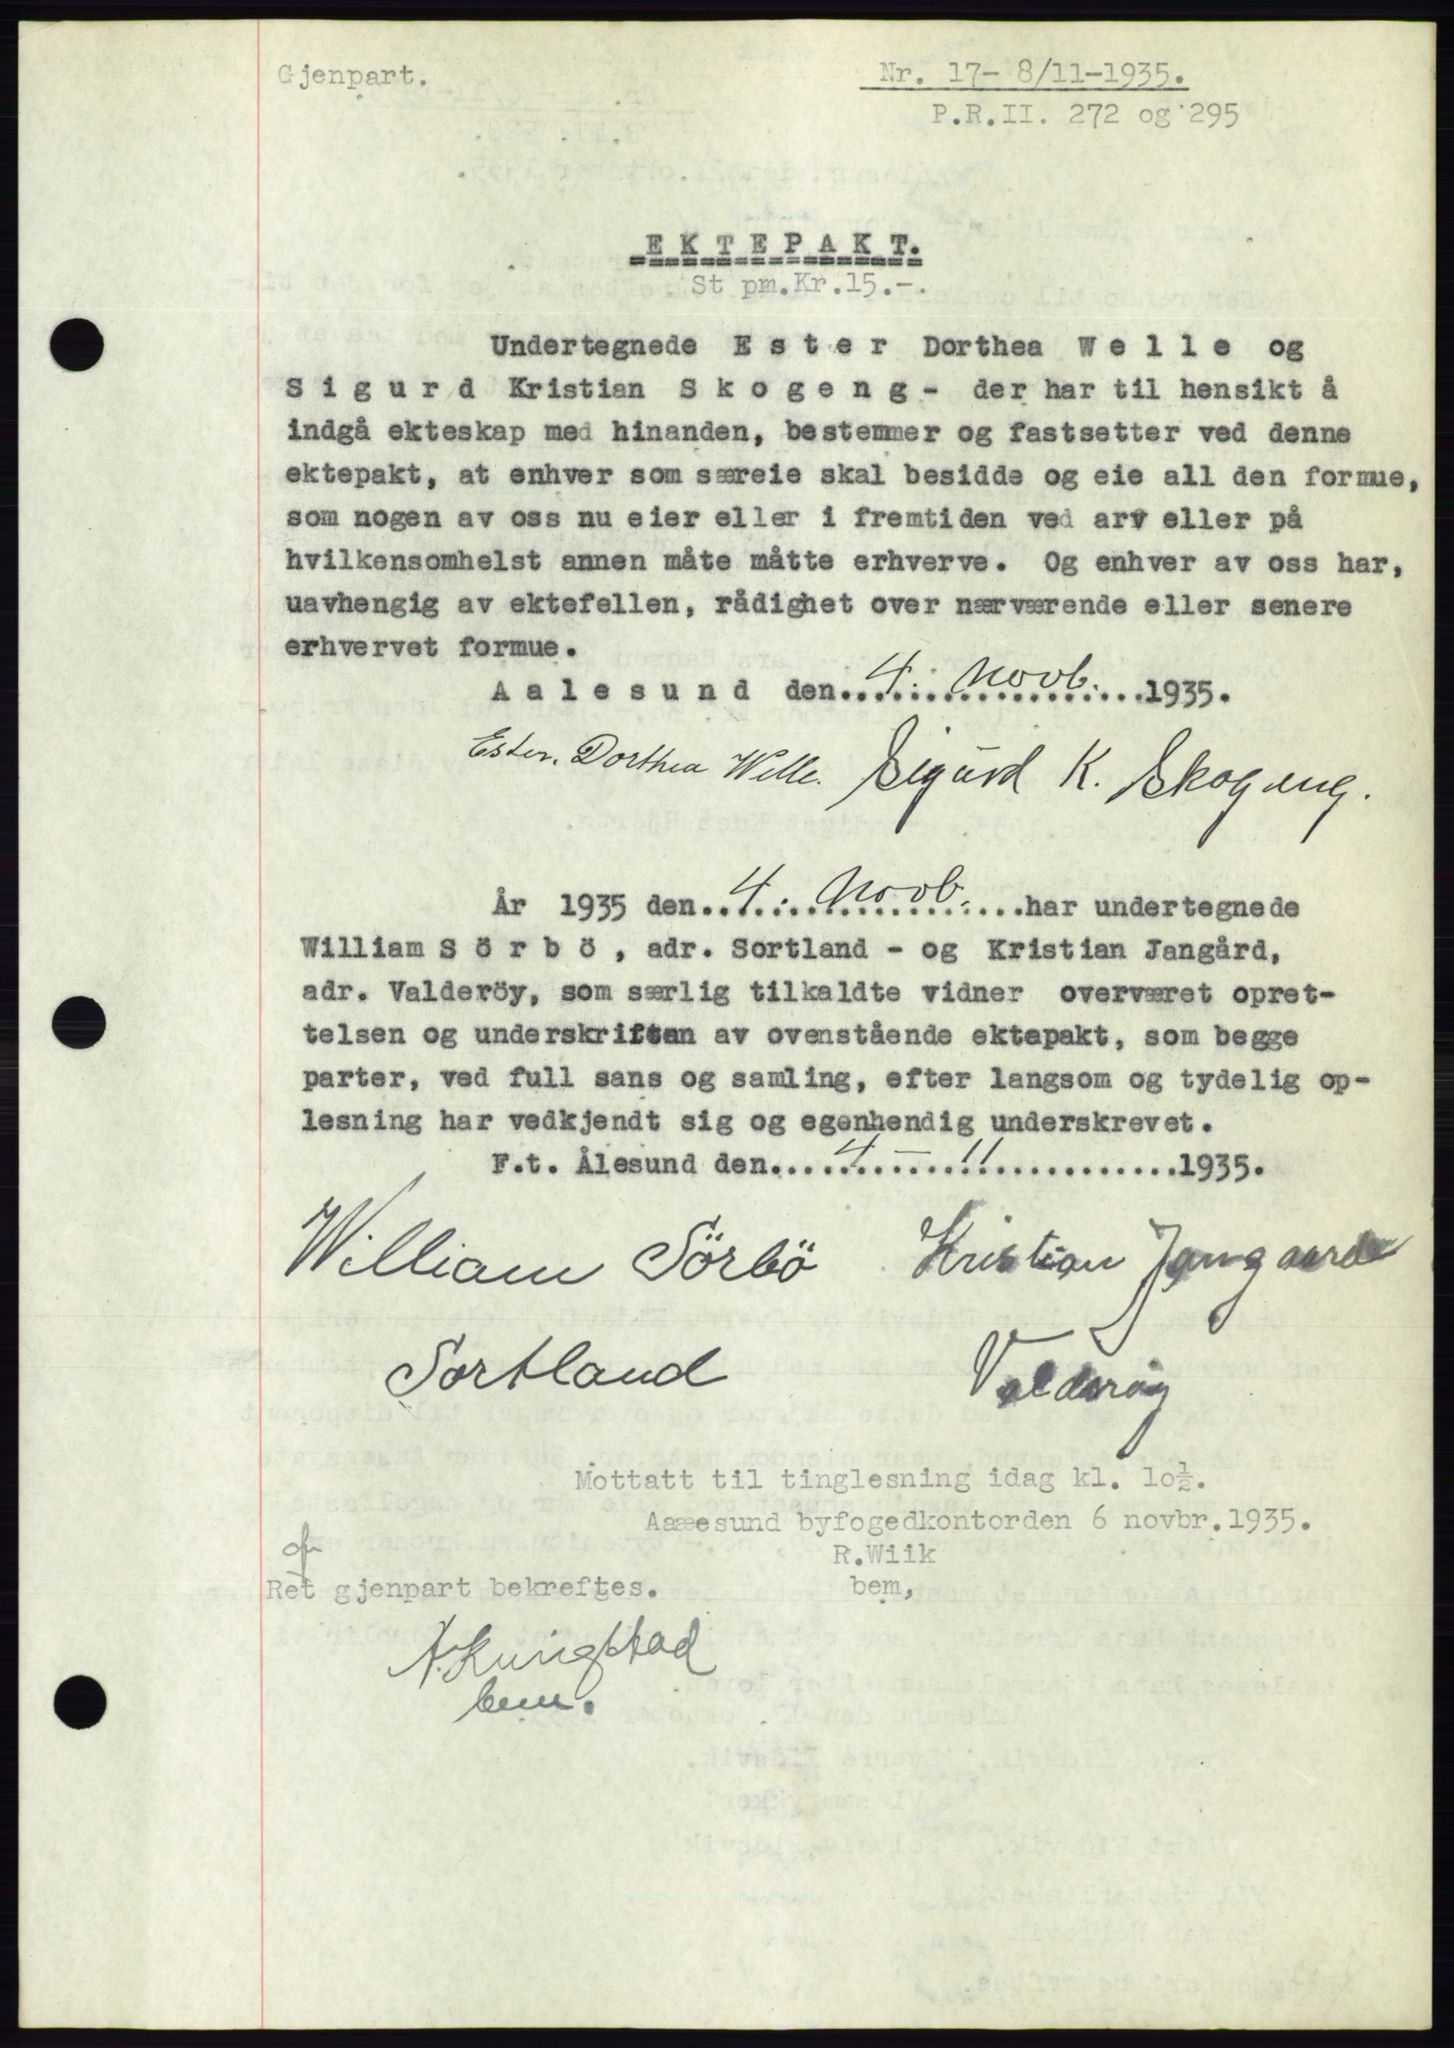 Gjenpart.
Nr. 17- 8/11-1935.
P.R.II. 272 og 295
E K T E P A K T.
St pm.Kr.15.-.
Undertegnede E s t e r Dorthea W e l l e og
S i g u r d Kristian S k o g e n g - der har til hensikt å
indgå ekteskap med hinanden, bestemmer og fastsetter ved denne
ektepakt, at enhver som særeie skal besidde og eie all den formue,
som nogen av oss nu eier eller i fremtiden ved arv eller på
hvilkensomhelst annen måte måtte erhverve. Og enhver av oss har,
uavhengig av ektefellen, rådighet over nærværende eller senere
erhvervet formue.
A a l e s u n d den..4. Novb.....1935.
Ester. Dorthea Welle. Sigurd K. Skogeng.
År 1935 den..4. Novb.....har undertegnede
William S ö r b ö , adr. Sortland - og Kristian Jangård,
adr. Valderöy, som særlig tilkaldte vidner overværet opret-
telsen og underskriften av ovenstående ektepakt, som begge
parter, ved full sans og samling, efter langsom og tydelig op-
lesning har vedkjendt sig og egenhendig underskrevet.
F.t. Ålesund den....4 - 11............1935.
William Sörbö Kristian Jangaard
Sortland Valderöy
Mottatt til tinglesning idag kl. 10½.
Aaæesund byfogedkontorden 6 novbr.1935.
R.Wiik
Ret gjenpart bekreftes. bem,
bem.